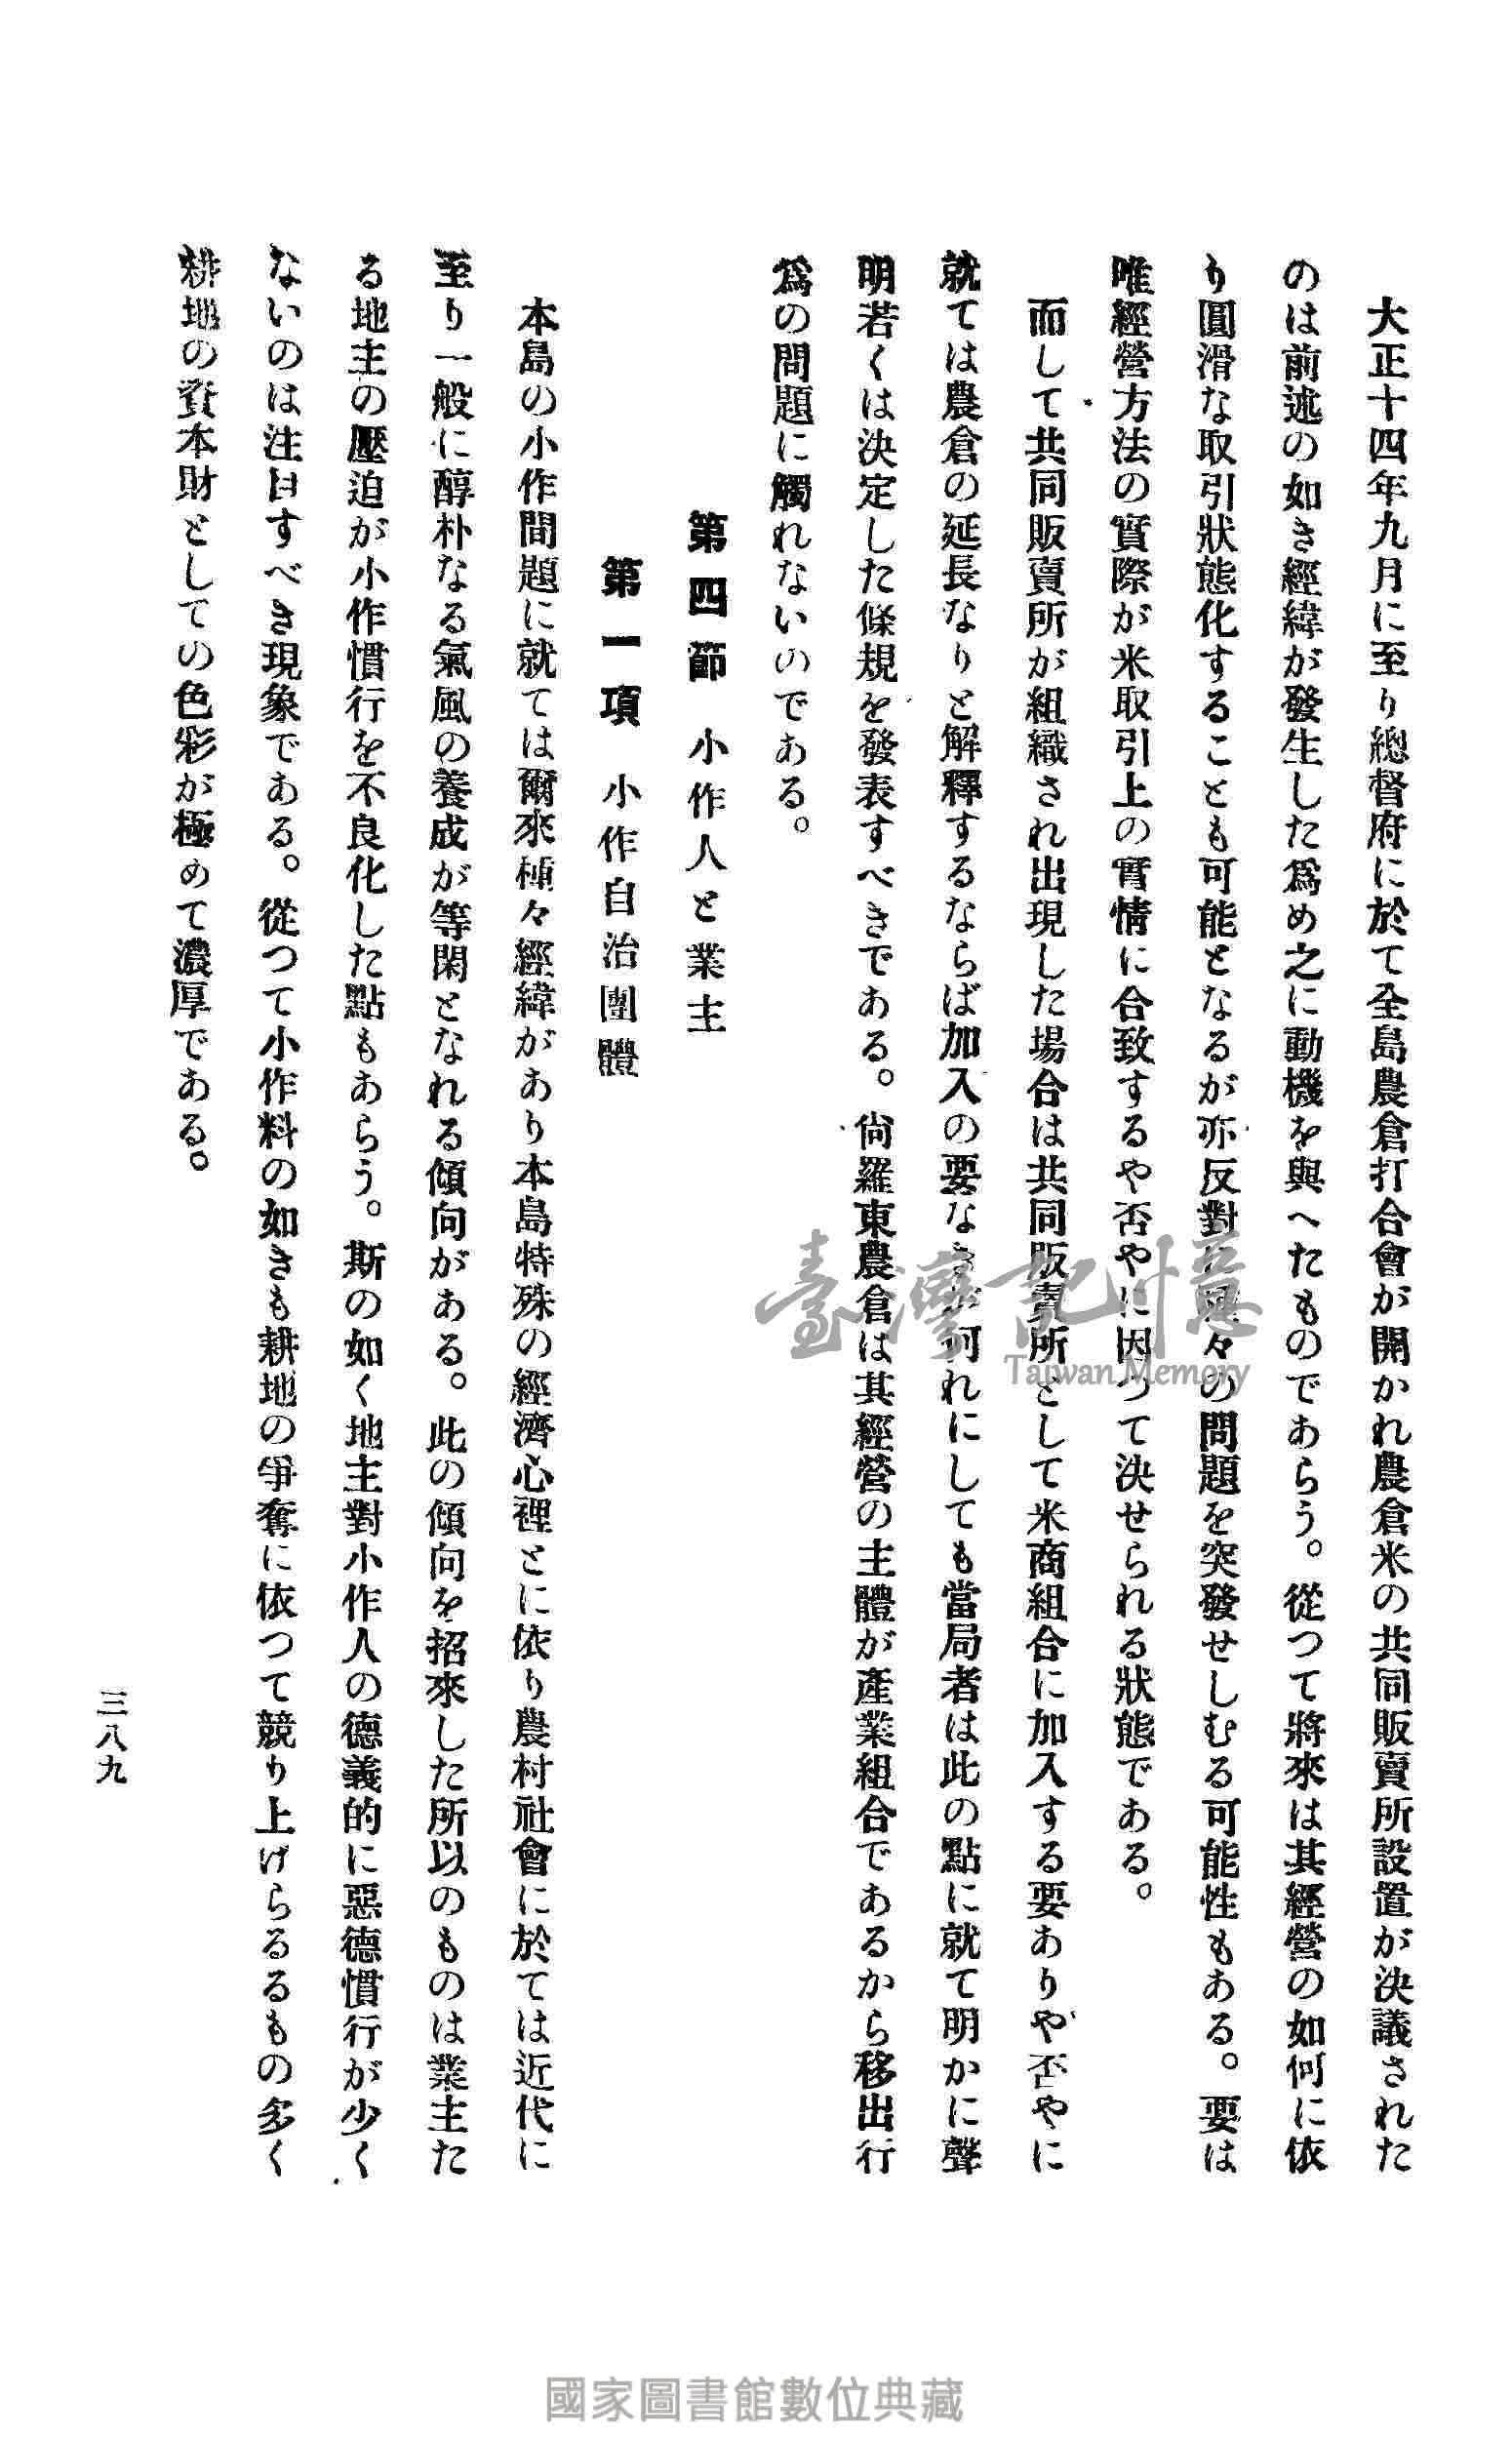 大正十四年九月に至り總督府に於て全島農倉打合會が開かれ農倉米の共同販賣所設置が決議された
のは前述の如き經緯が發生した爲め之に動機を與へたものであらう。從つて將來は其經營の如何に依
り圓滑な取引狀態化することも可能となるが亦反對に々の問題を突發せしむる可能性もある。要は
唯經營方法の實際が米取引上の實情に合致するや否やに因つて決せられる狀態である。
而して共同販賣所が組織され出現した場合は共同販賣所として米商組合に加入する要ありや否やに
就ては農倉の延長なりと解釋するならば加入の要なきが何れにしても當局者は此の點に就て明かに聲
明若くは決定した條規を發表すべきである。尙羅東農倉は其經營の主體が產業組合であるから移出行
爲の問題に觸れないのである。
第四節 小作人と業主
第一項 小作自治團體
本島の小作問題に就ては爾來種々經緯があり本島特殊の經濟心裡とに依り農村社會に於ては近代に
至り一般に醇朴なる氣風の養成が等閑となれる傾向がある。此の傾向を招來した所以のものは業主た
る地主の壓迫が小作慣行を不良化した點もあらう。斯の如く地主對小作人の德義的に惡德慣行が少く
ないのは注目すべき現象である。從つて小作料の如きも耕地の爭奪に依つて競り上げらるるもの多く
耕地の資本財としての色彩が極めて濃厚である。
三八九
臺灣記憶
Taiwan Memory
國家圖書館數位典藏